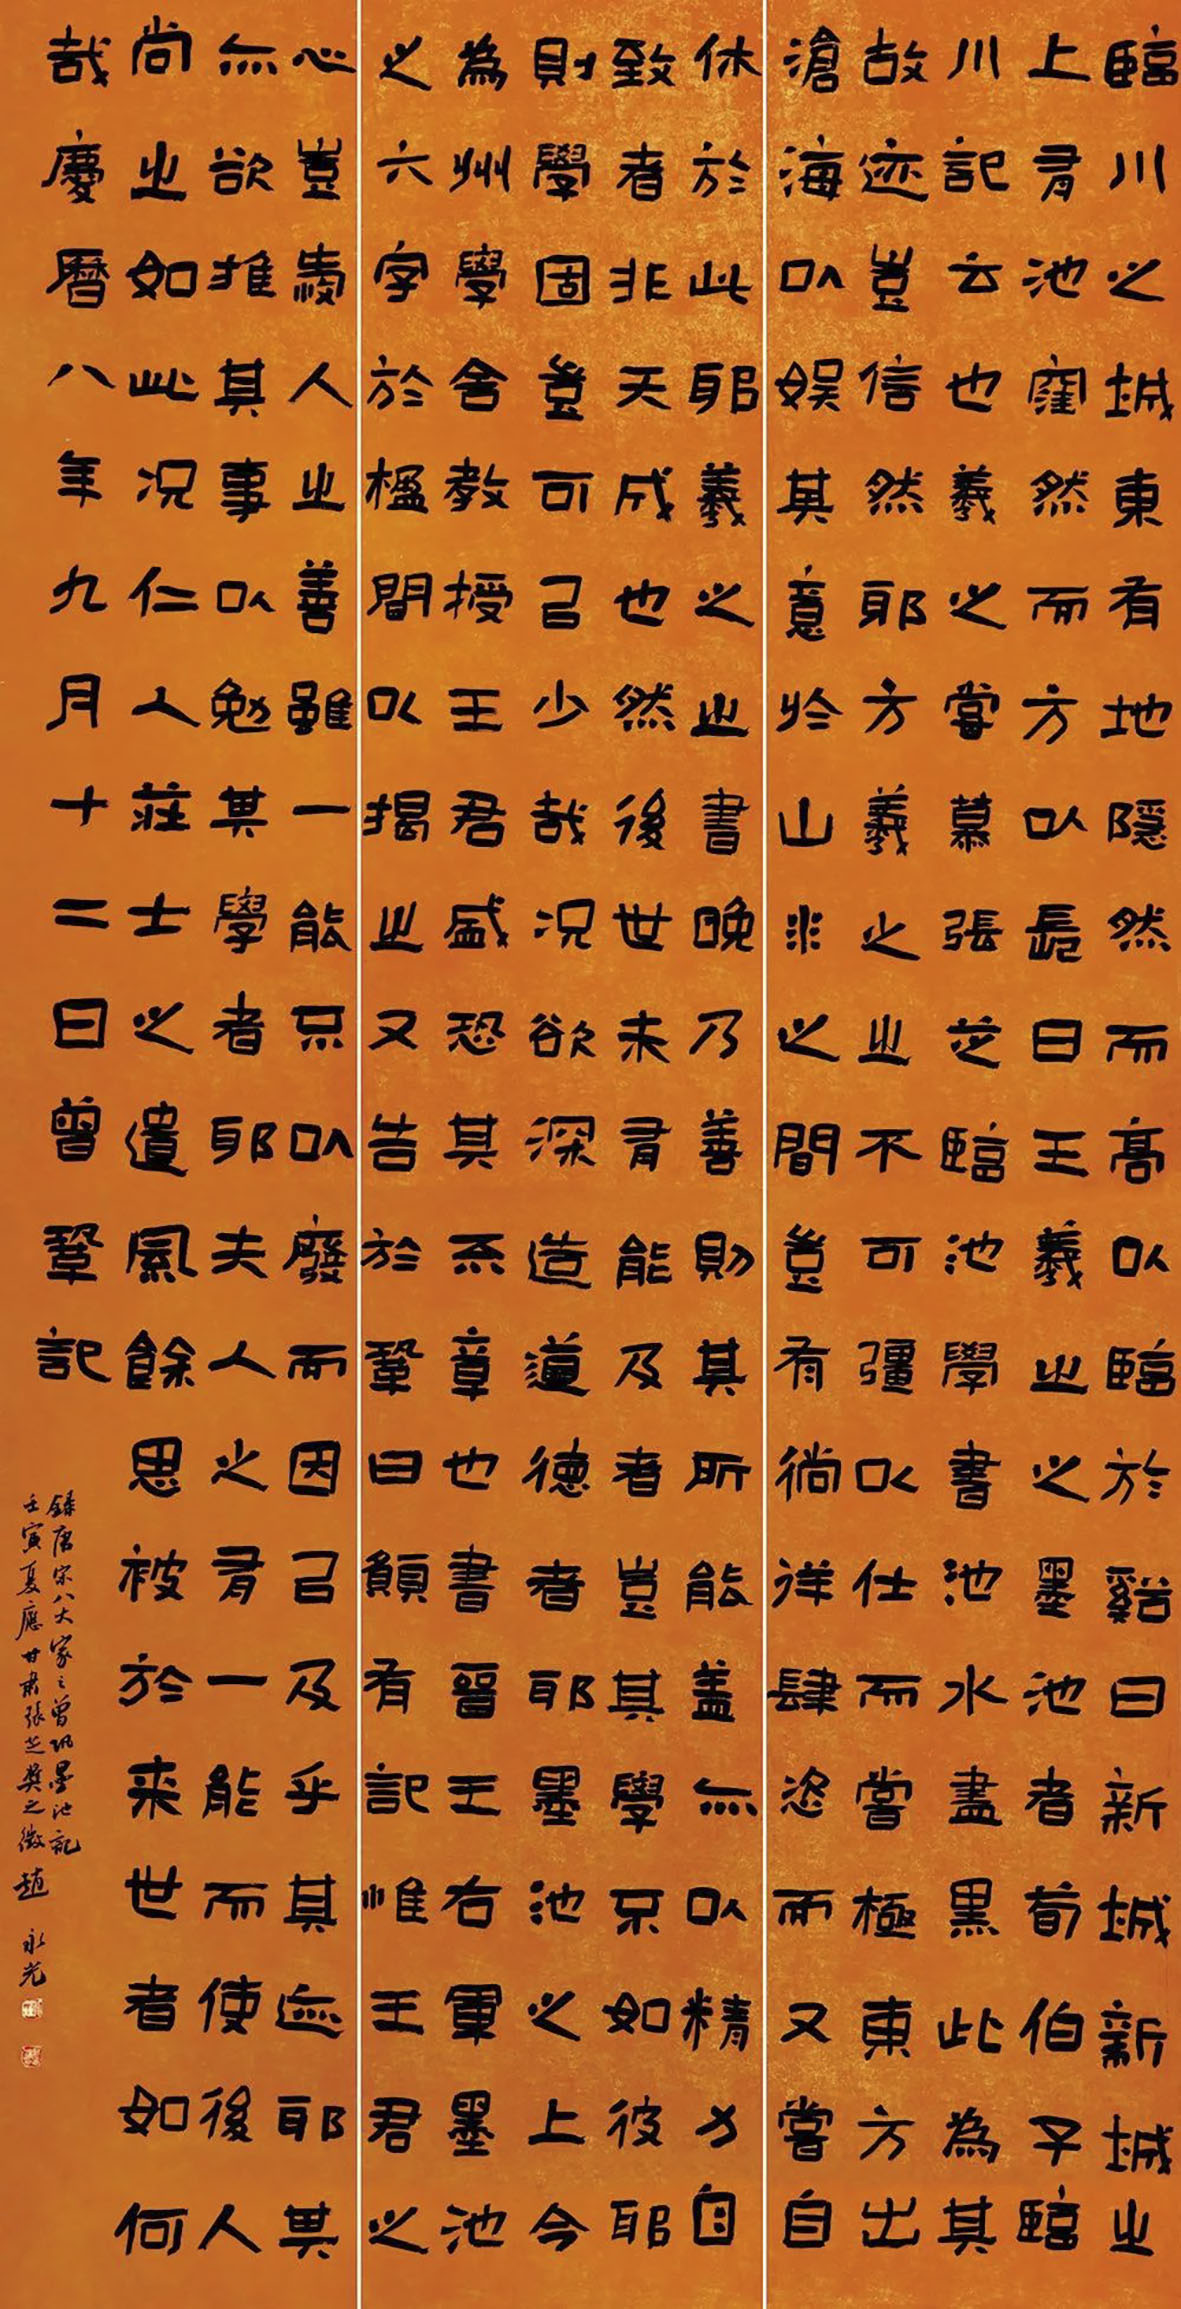 臨川之城東有地隱然而高以臨於谿曰新城新城之
上有池窪然而方以長曰王羲之之墨池者荀伯子臨
川記云也羲之嘗慕張芝臨池學書池水盡黑此為其
故迹豈信然耶方羲之之不可彊以仕而嘗極東方出
滄海以娛其意於山水之間豈有徜徉肆恣而又嘗自
休於此耶羲之之書晚乃善則其所能蓋無以精力自
致者非天成也然後世未有能及者豈其學不如彼耶
則學固豈可㠯少哉況欲深造道德者耶墨池之上今
為州學舍教授王君盛恐其不章也書晉王右軍墨池
之六字於楹間以揭之又告於鞏曰願有記惟王君之
心豈愛人之善雖一能不以廢而因㠯及乎其迹耶其
無欲推其事以勉其學者耶夫人之有一能而使後人
尚之如此況仁人莊士之遺風餘思被於来世者如何
哉慶曆八年九月十二日曾鞏記
錄唐宋八大家之曾巩墨池記
壬寅夏應甘肅張芝獎之徵趙永光